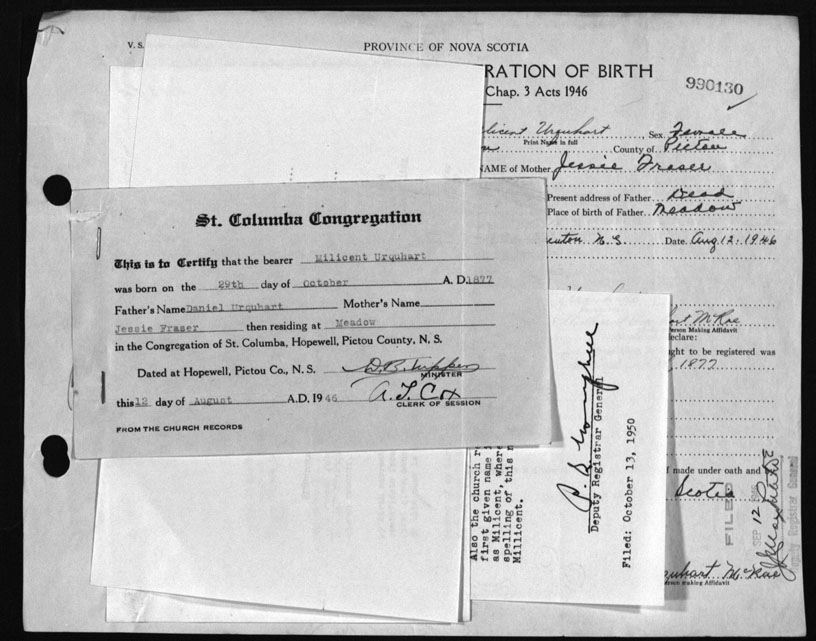 V. S.
PROVINCE OF NOVA SCOTIA
RATION OF BIRTH
Chap. 3 Acts 1946
990130
licent Urquhart, Sex. Female
Print Name in full
County of Pictou
NAME of Mother Jessie Fraser
Present address of Father Dead
Place of birth of Father Meadow
N.S. Date. Aug 12. 1946
St. Columba Congregation
This is to Certify that the bearer Milicent Urquhart
was born on the 29th day of October A. D. 1877
Father's Name Daniel Urquhart Mother's Name
Jessie Fraser then residing at Meadow
in the Congregation of St. Columba, Hopewell, Pictou County, N. S.
Dated at Hopewell, Pictou Co., N. S.
MINISTER
this 12 day of August A.D. 1946 A. T. Cox
CLERK OF SESSION
FROM THE CHURCH RECORDS
McRae
erson Making Affidavit
eclare:
ght to be registered was
1877
f made under oath and
Scotia
FILED
SEP 12
Deputy Registrar General
rquhart McRae
Person Making Affidavit
Also the church r
first given name i
as Milicent, where
spelling of this n
Millicent.
Deputy Registrar General
Filed: October 13, 1950